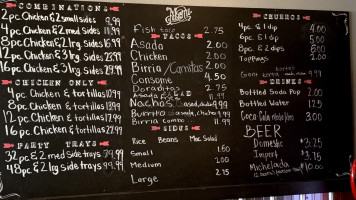 COMBINATIONS
2pc Chicken & 2 small sides 8.99
4pc Chicken & 2 med sides 11.99
8pc Chicken & 2 lrg. sides 16.99
12pc Chicken & 3 lrg. sides
16pc Chicken & 3 lrg sides 29.99
CHICKEN ONLY
4pc Chicken + tortillas
8pc Chicken + tortillas 13.99
12pc Chicken + tortillas 17.99
16pc Chicken + tortillas 22.99
PARTY TRAYS
32 pc & 2 med side trays
48 pc & 2 lrg side trays 99.99
Menu
Fish taco 2.75
TACOS
Asada 2.00
Chicken 2.00
Birria/Carnitas 2.00
Consome 4.50
Doraditos 2.50
Asada Fries
Nachos
Burrito
Birria Combo 11.99
SIDES
Rice Beans Mac Salad
Small 1.50
Medium
Large 2.75
CHURROS
4pc. & 1 dip 4.00
5pc. & 1 dip 5.00
8pc. & 2 dips 8.00
Toppings 2.00
DRINKS
Bottled Soda Pop 2.00
Bottled Water
Coca-Cola 3.00
BEER
Domestic
Import
Michelada
$10.00